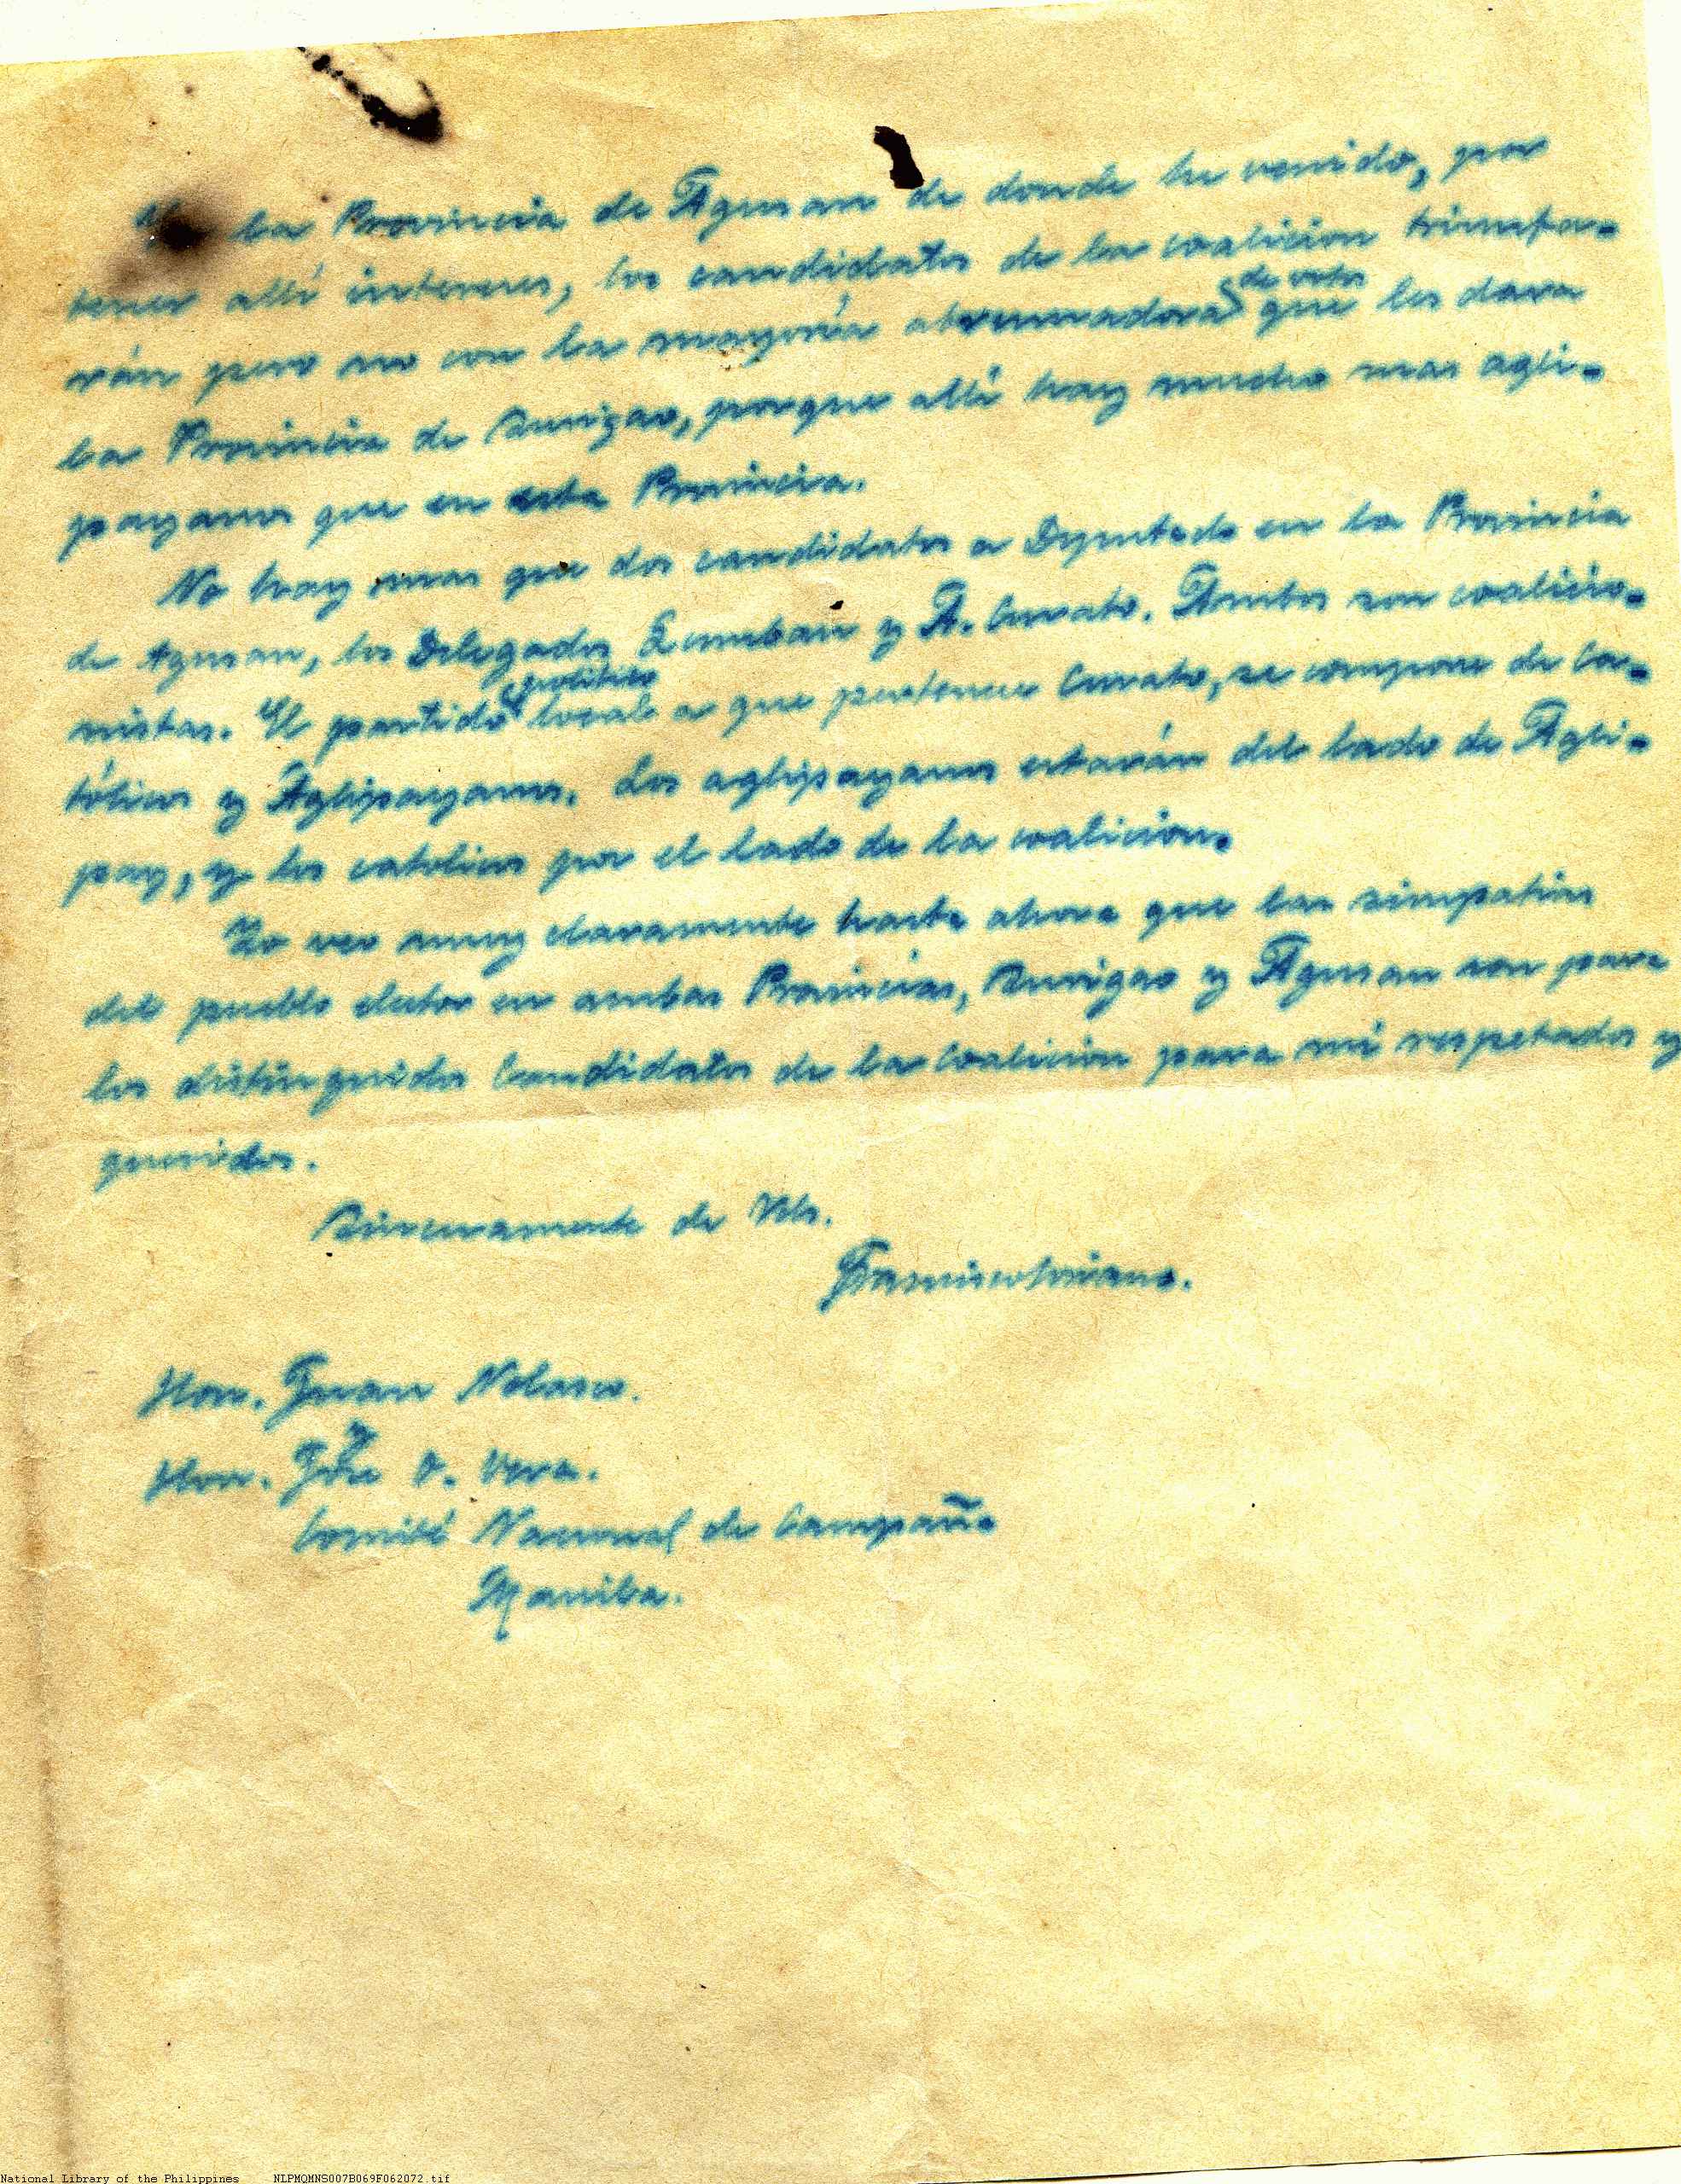 la Provincia de Agusan de donde he venido, por
tener allí intereses, los candidatos de la coalicion triunfa-
rán pero no con la mayoría abrumadora de votos que les dara
la Provincia de Surigao, porque allí hay mucho mas agli-
payanos que en esta Provincia.
No hay mas que dos candidatos a Diputado en la Provincia
de Agusan, los Delegados y A. Curato. Ambos son coalicio-
nistas. El partido politico local a que pertenece Curato, se compone de ca-
tólicos y Aglipayanos. Los aglipayanos estarán del lado de Agli-
pay, y los catolicos por el lado de la coalicion.
Yo veo muy claramente hasta ahora que las simpatias
del pueblo elector en ambas Provincias, Surigao y Agusan son para
los distinguidos Candidatos de la Coalicion para mí respetados y
queridos.
Sinceramente de Vds.
Francisco
Hon. Juan Nolasco.
y
Hon. José O. Vera.
Comité Nacional de Campaña
Manila.
National Library of the Philippines NLPMQMNS007B069F062072.tif